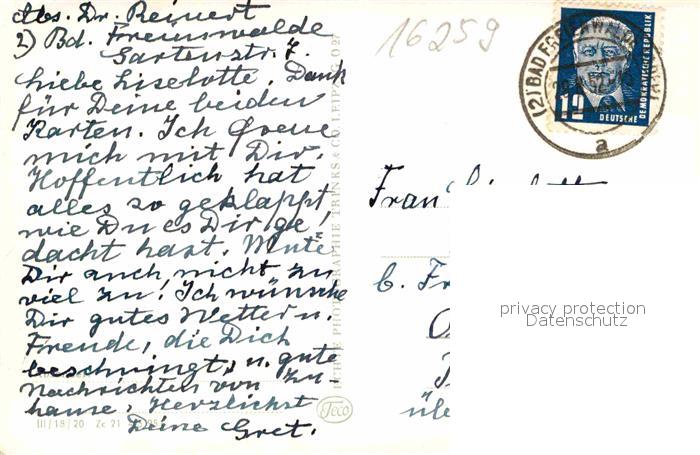 Abs. Dr. Reinert
2) Bd. Freienwalde
Gartenstr. 7.
Liebe Liselotte. Dank
für Deine beiden
Karten. Ich freue
mich mit Dir.
Hoffentlich hat
alles so geklappt
wie Du es Dir ge,
dacht hast. Mute
Dir auch nicht zu
viel zu! Ich wünsche
Dir gutes Wetter u.
Freude, die Dich
beschwingt, u. gute
Nachrichten von zu-
hause. Herzlichst
Deine Gret.
16259
(2) BAD FREIENWALDE
a
12
DEUTSCHE
DEMOKRATISCHE REPUBLIK
Frau
b. Fr
privacy protection
Datenschutz
üb
ECHTE PHOTOGRAPHIE TRINKS & CO. LEIPZIG O 27
Trco
III/18/20 Zc 21